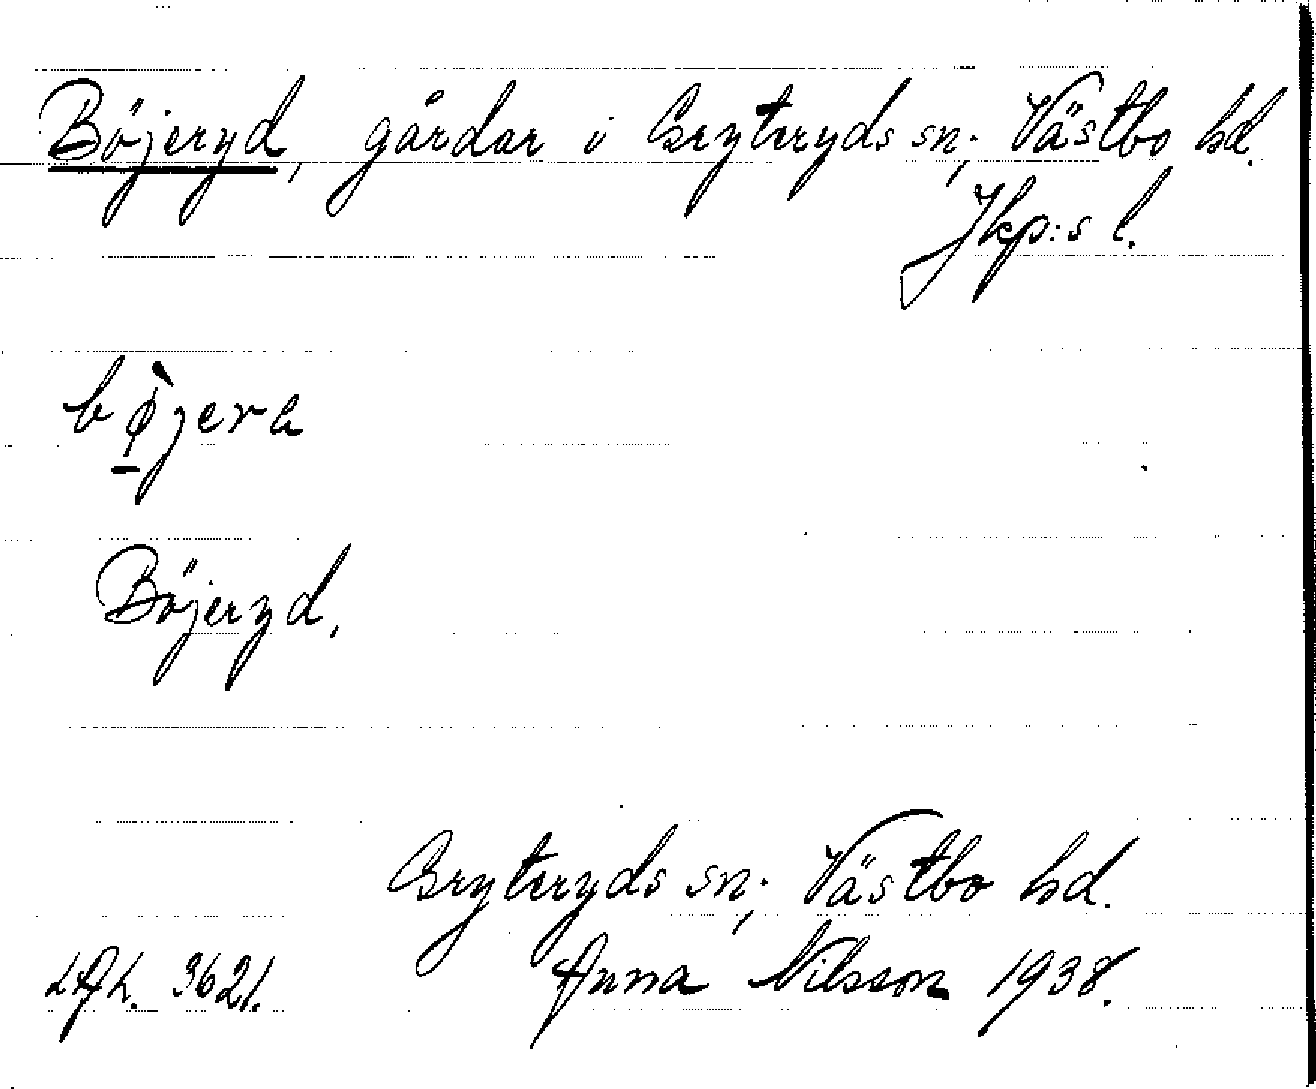 Böjeryd, gårdar i Gryteryds sn; Västbo hd.
Jkp:s l.
bø̱̀jera
Böjeryd,
Gryteryds sn; Västbo hd.
LAL. 3621. Anna Nilsson 1938.